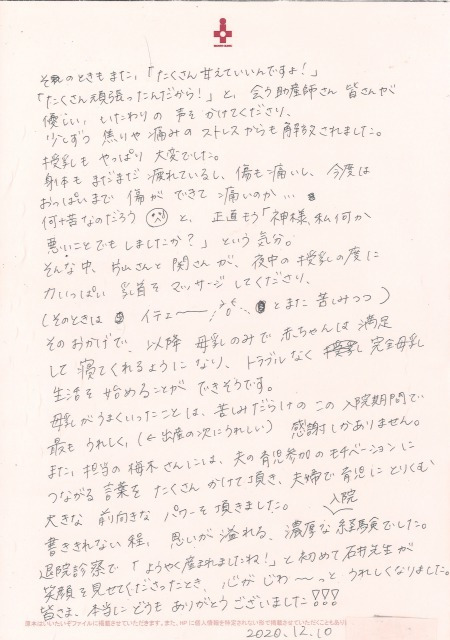 それのときもまた、「たくさん甘えていいんですよ！」
「たくさん頑張ったんだから！」と、会う助産師さん皆さんが
優しい、いたわりの声をかけてくださり、
少しずつ焦りや痛みのストレスからも解放されました。
授乳もやっぱり大変でした。
身体もまだまだ疲れているし、傷も痛いし、今度は
おっぱいまで傷ができて痛いのか…
何苦なのだろう と、正直もう「神様、私何か
悪いことでもしましたか？」という気分。
そんな中、片山さんと関さんが、夜中の授乳の度に
力いっぱい乳首をマッサージしてくださり、
(そのときは イテェー とまた苦しみつつ)
そのおかげで、以降母乳のみで赤ちゃんは満足
して寝てくれるようになり、トラブルなく 完全母乳
生活を始めることができそうです。
母乳がうまくいったことは、苦しみだらけのこの入院期間で
最もうれしく、(←出産の次にうれしい) 感謝しかありません。
また、担当の梅木さんには、夫の育児参加のモチベーションに
つながる言葉をたくさんかけて頂き、夫婦で育児にとりくむ
大きな前向きなパワーを頂きました。
入院
書ききれない程、思いが溢れる、濃厚な経験でした。
退院診察で「ようやく産まれましたね！」と初めて石井先生が
笑顔を見せてくださったとき、心がじわ〜〜っと、うれしくなりました。
皆さま、本当にどうもありがとうございました!!!
2020.12.10